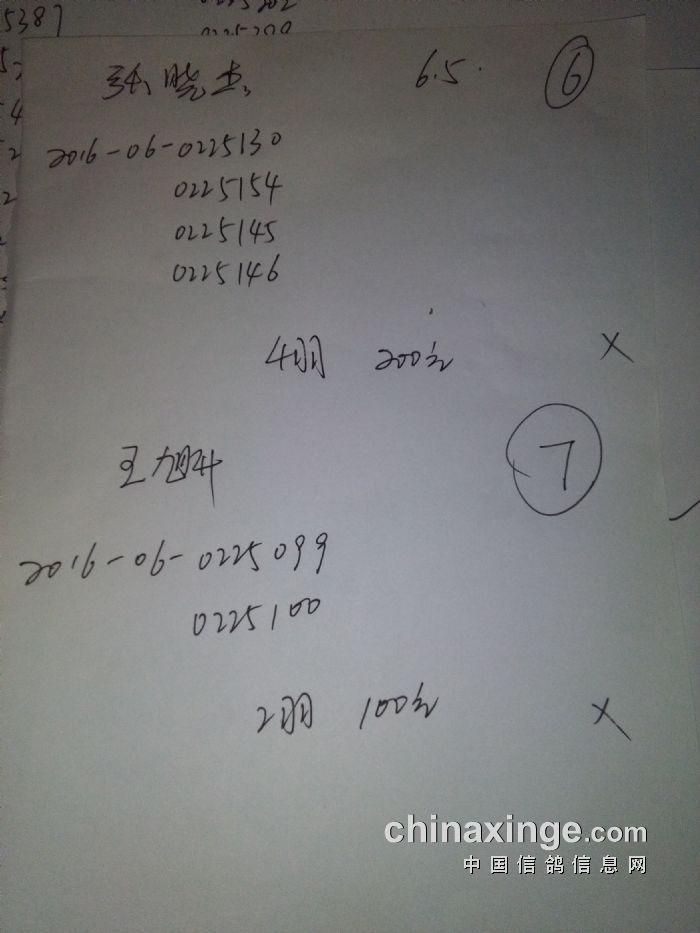 5387
0225200
张晓杰 6.5. 6
2016-06-0225130
0225154
0225145
0225146
4羽 200元 ×
王旭升 7
2016-06-0225099
0225100
2羽 100元 ×
chinaxinge.com
中国信鸽信息网